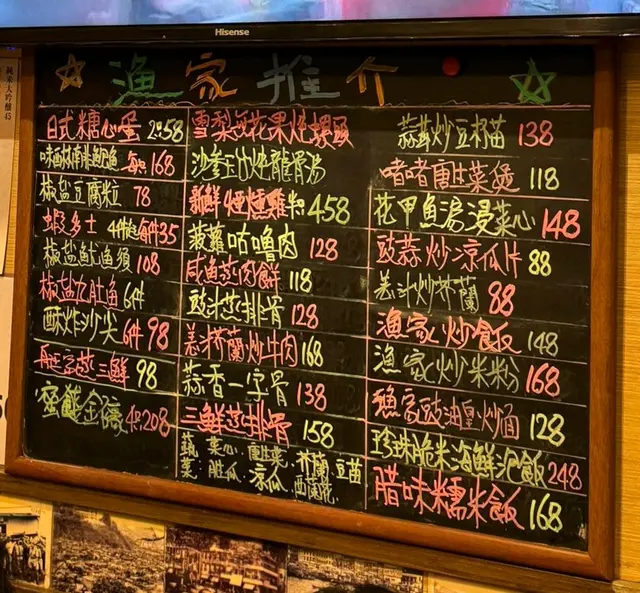 Hisense
純米大吟釀45
漁家推介
日式糖心蛋 2隻58
味醂南非鮑魚 每隻168
椒盐豆腐粒 78
蝦多士 4件起每件35
椒盐魷魚須 108
椒盐九肚魚 6件
酥炸沙尖 6件98
蒸三鮮 98
蜜餞金蠔 4隻208
雪梨無花果炖螺頭
沙参玉竹炖龍骨湯
新鮮煙燻雞 半只458
菠蘿咕嚕肉 128
咸鱼蒸肉餅 118
豉汁蒸排骨 128
姜汁芥蘭炒牛肉 168
蒜香一字骨 138
三鮮蒸排骨 158
蔬菜: 菜心、唐生菜、芥蘭、豆苗
胜瓜、凉瓜、西蘭花、
蒜茸炒豆苗 138
啫啫唐生菜煲 118
花甲魚湯浸菜心 148
豉蒜炒凉瓜片 88
姜汁炒芥蘭 88
漁家炒飯 148
漁家炒米粉 168
漁家豉油皇炒面 128
珍珠脆米海鮮泡飯 248
腊味糯米飯 168